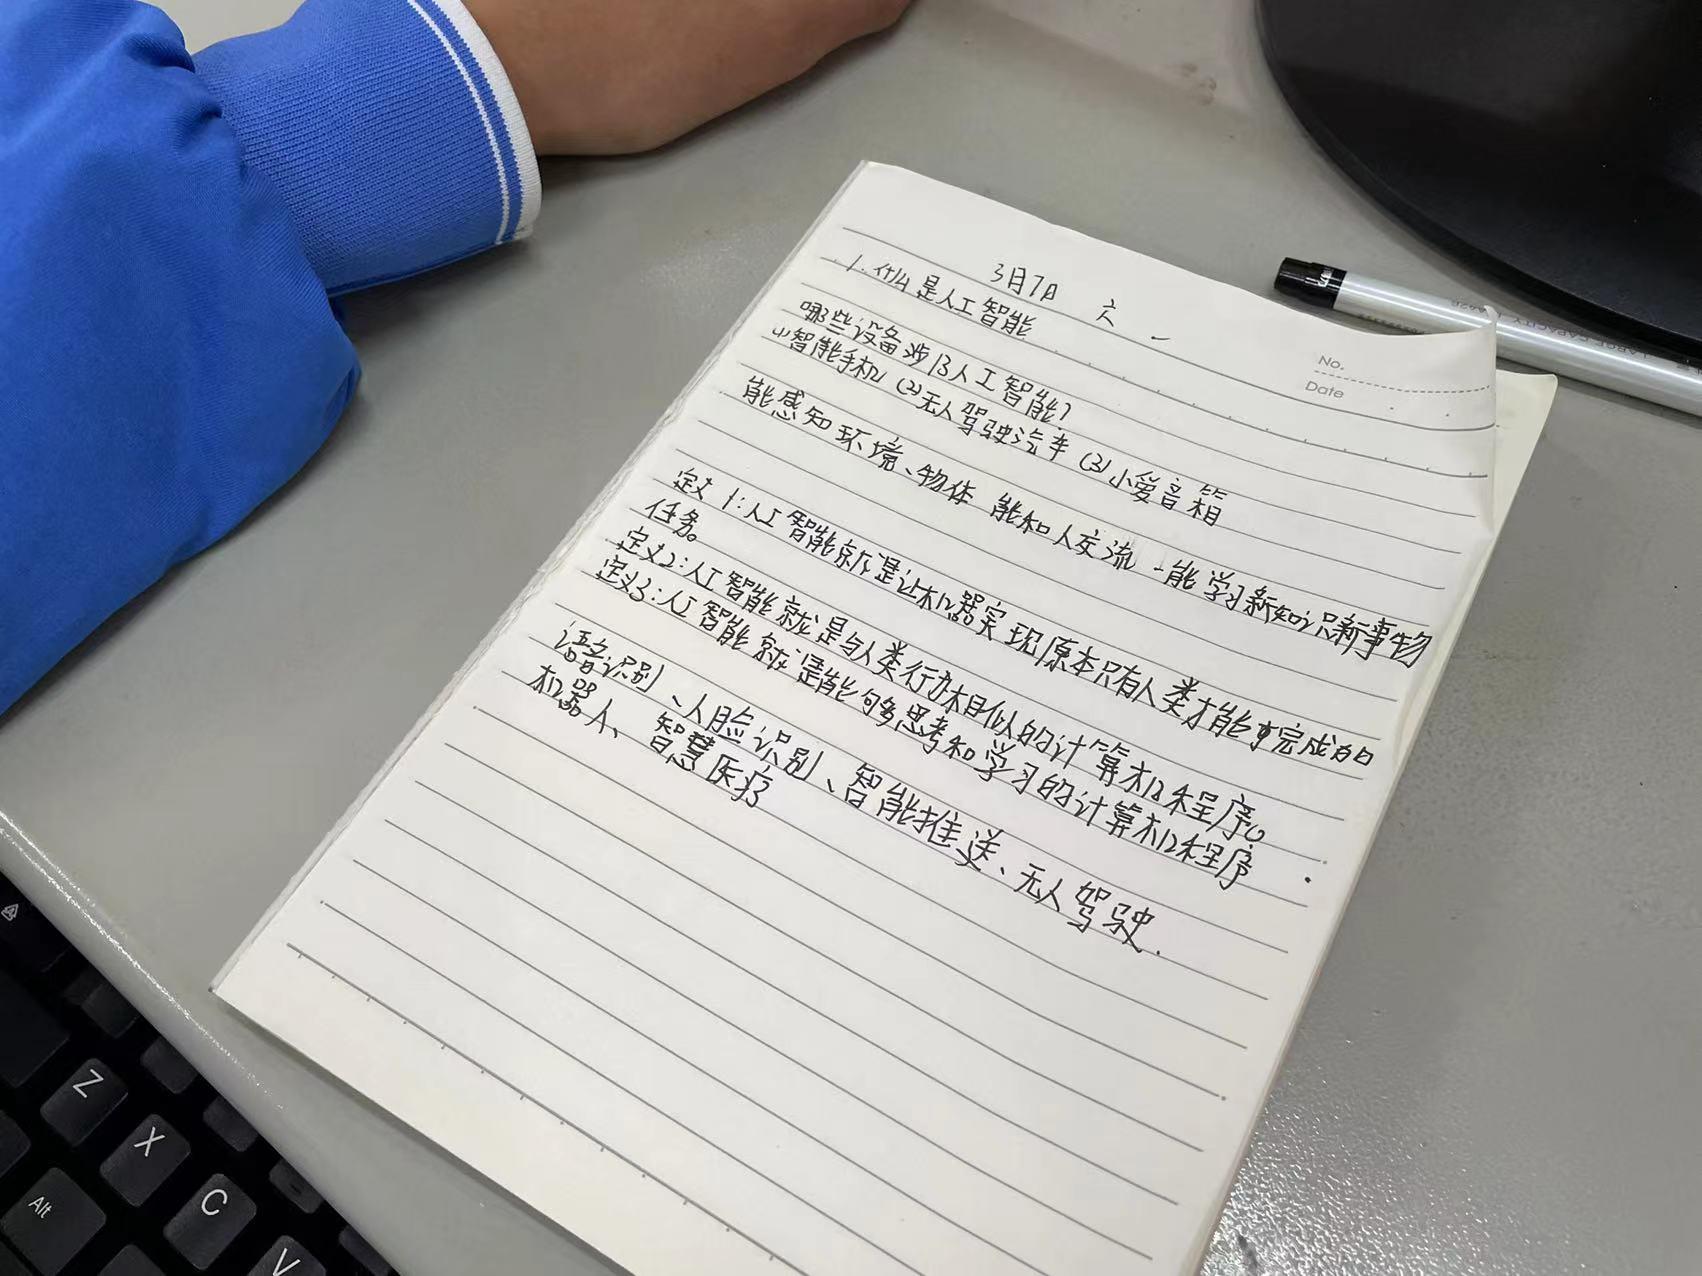 3月7日 六
No.
Date
1. 什么是人工智能
哪些设备涉及人工智能?
(1)智能手机 (2)无人驾驶汽车 (3)小爱音箱
能感知环境、物体 能和人交流 能学习新知识新事物
定义1:人工智能就是让机器实现原本只有人类才能完成的
任务。
定义2:人工智能就是与人类行为相似的计算机程序。
定义3:人工智能就是能够思考和学习的计算机程序.
语音识别、人脸识别、智能推送、无人驾驶.
机器人、智慧医疗
Z
X
C
V
Alt